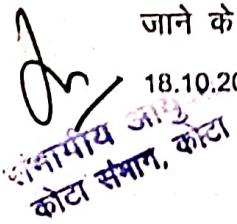 जाने के
18.10.20
संभागीय आयु
कोटा संभाग, कोटा